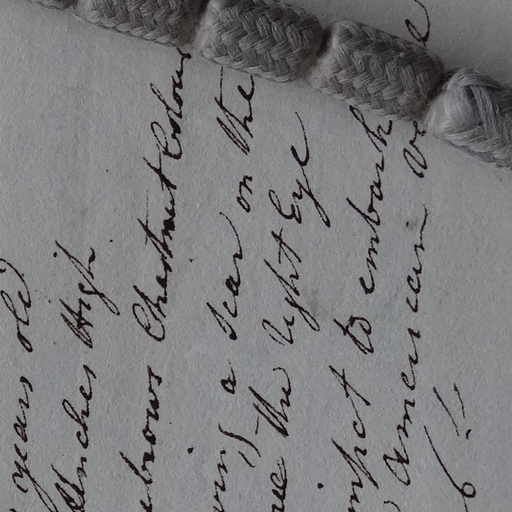 years old
Inches High
ebrows Chestnut Colour
ving a Scar on the
the Right Eye
to embark
American